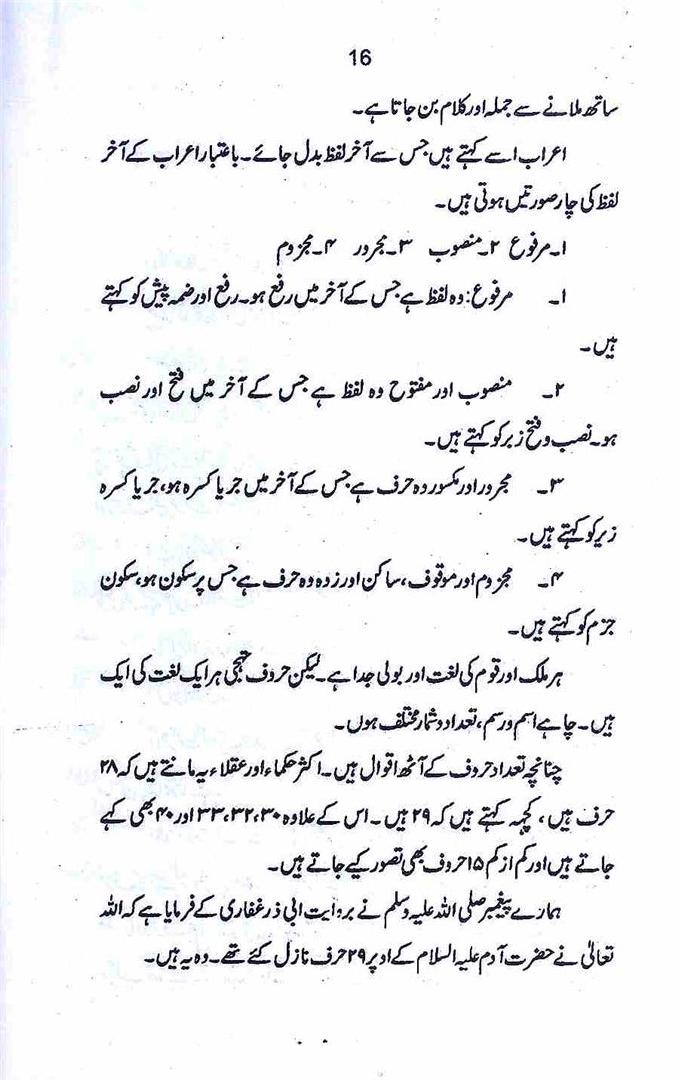 16
ساتھ ملانے سے جملہ اور کلام بن جاتا ہے۔
اعراب اسے کہتے ہیں جس سے آخر لفظ بدل جائے۔ باعتبار اعراب کے آخر
لفظ کی چار صورتیں ہوتی ہیں۔
۱۔ مرفوع ۲۔ منصوب ۳۔ مجرور ۴۔ مجزوم
۱۔ مرفوع: وہ لفظ ہے جس کے آخر میں رفع ہو۔ رفع اور ضمہ پیش کو کہتے
ہیں۔
۲۔ منصوب اور مفتوح وہ لفظ ہے جس کے آخر میں فتح اور نصب
ہو۔ نصب و فتح زبر کو کہتے ہیں۔
۳۔ مجرور اور مکسور وہ حرف ہے جس کے آخر میں جر یا کسرہ ہو، جر یا کسرہ
زیر کو کہتے ہیں۔
۴۔ مجزوم اور موقوف، ساکن اور زدہ وہ حرف ہے جس پر سکون ہو، سکون
جزم کو کہتے ہیں۔
ہر ملک اور قوم کی لغت اور بولی جدا ہے۔ لیکن حروف تہجی ہر ایک لغت کی ایک
ہیں۔ چاہے اسم و رسم، تعداد و شمار مختلف ہوں۔
چنانچہ تعداد حروف کے آٹھ اقوال ہیں۔ اکثر حکماء اور عقلاء یہ مانتے ہیں کہ ۲۸
حرف ہیں، کچھ کہتے ہیں کہ ۲۹ ہیں۔ اس کے علاوہ ۳۰، ۳۲، ۳۳ اور ۴۰ بھی کہے
جاتے ہیں اور کم از کم ۱۵ حروف بھی تصور کیے جاتے ہیں۔
ہمارے پیغمبر صلی اللہ علیہ وسلم نے بروایت ابی ذر غفاری کے فرمایا ہے کہ اللہ
تعالیٰ نے حضرت آدم علیہ السلام کے اوپر ۲۹ حرف نازل کئے تھے۔ وہ یہ ہیں۔